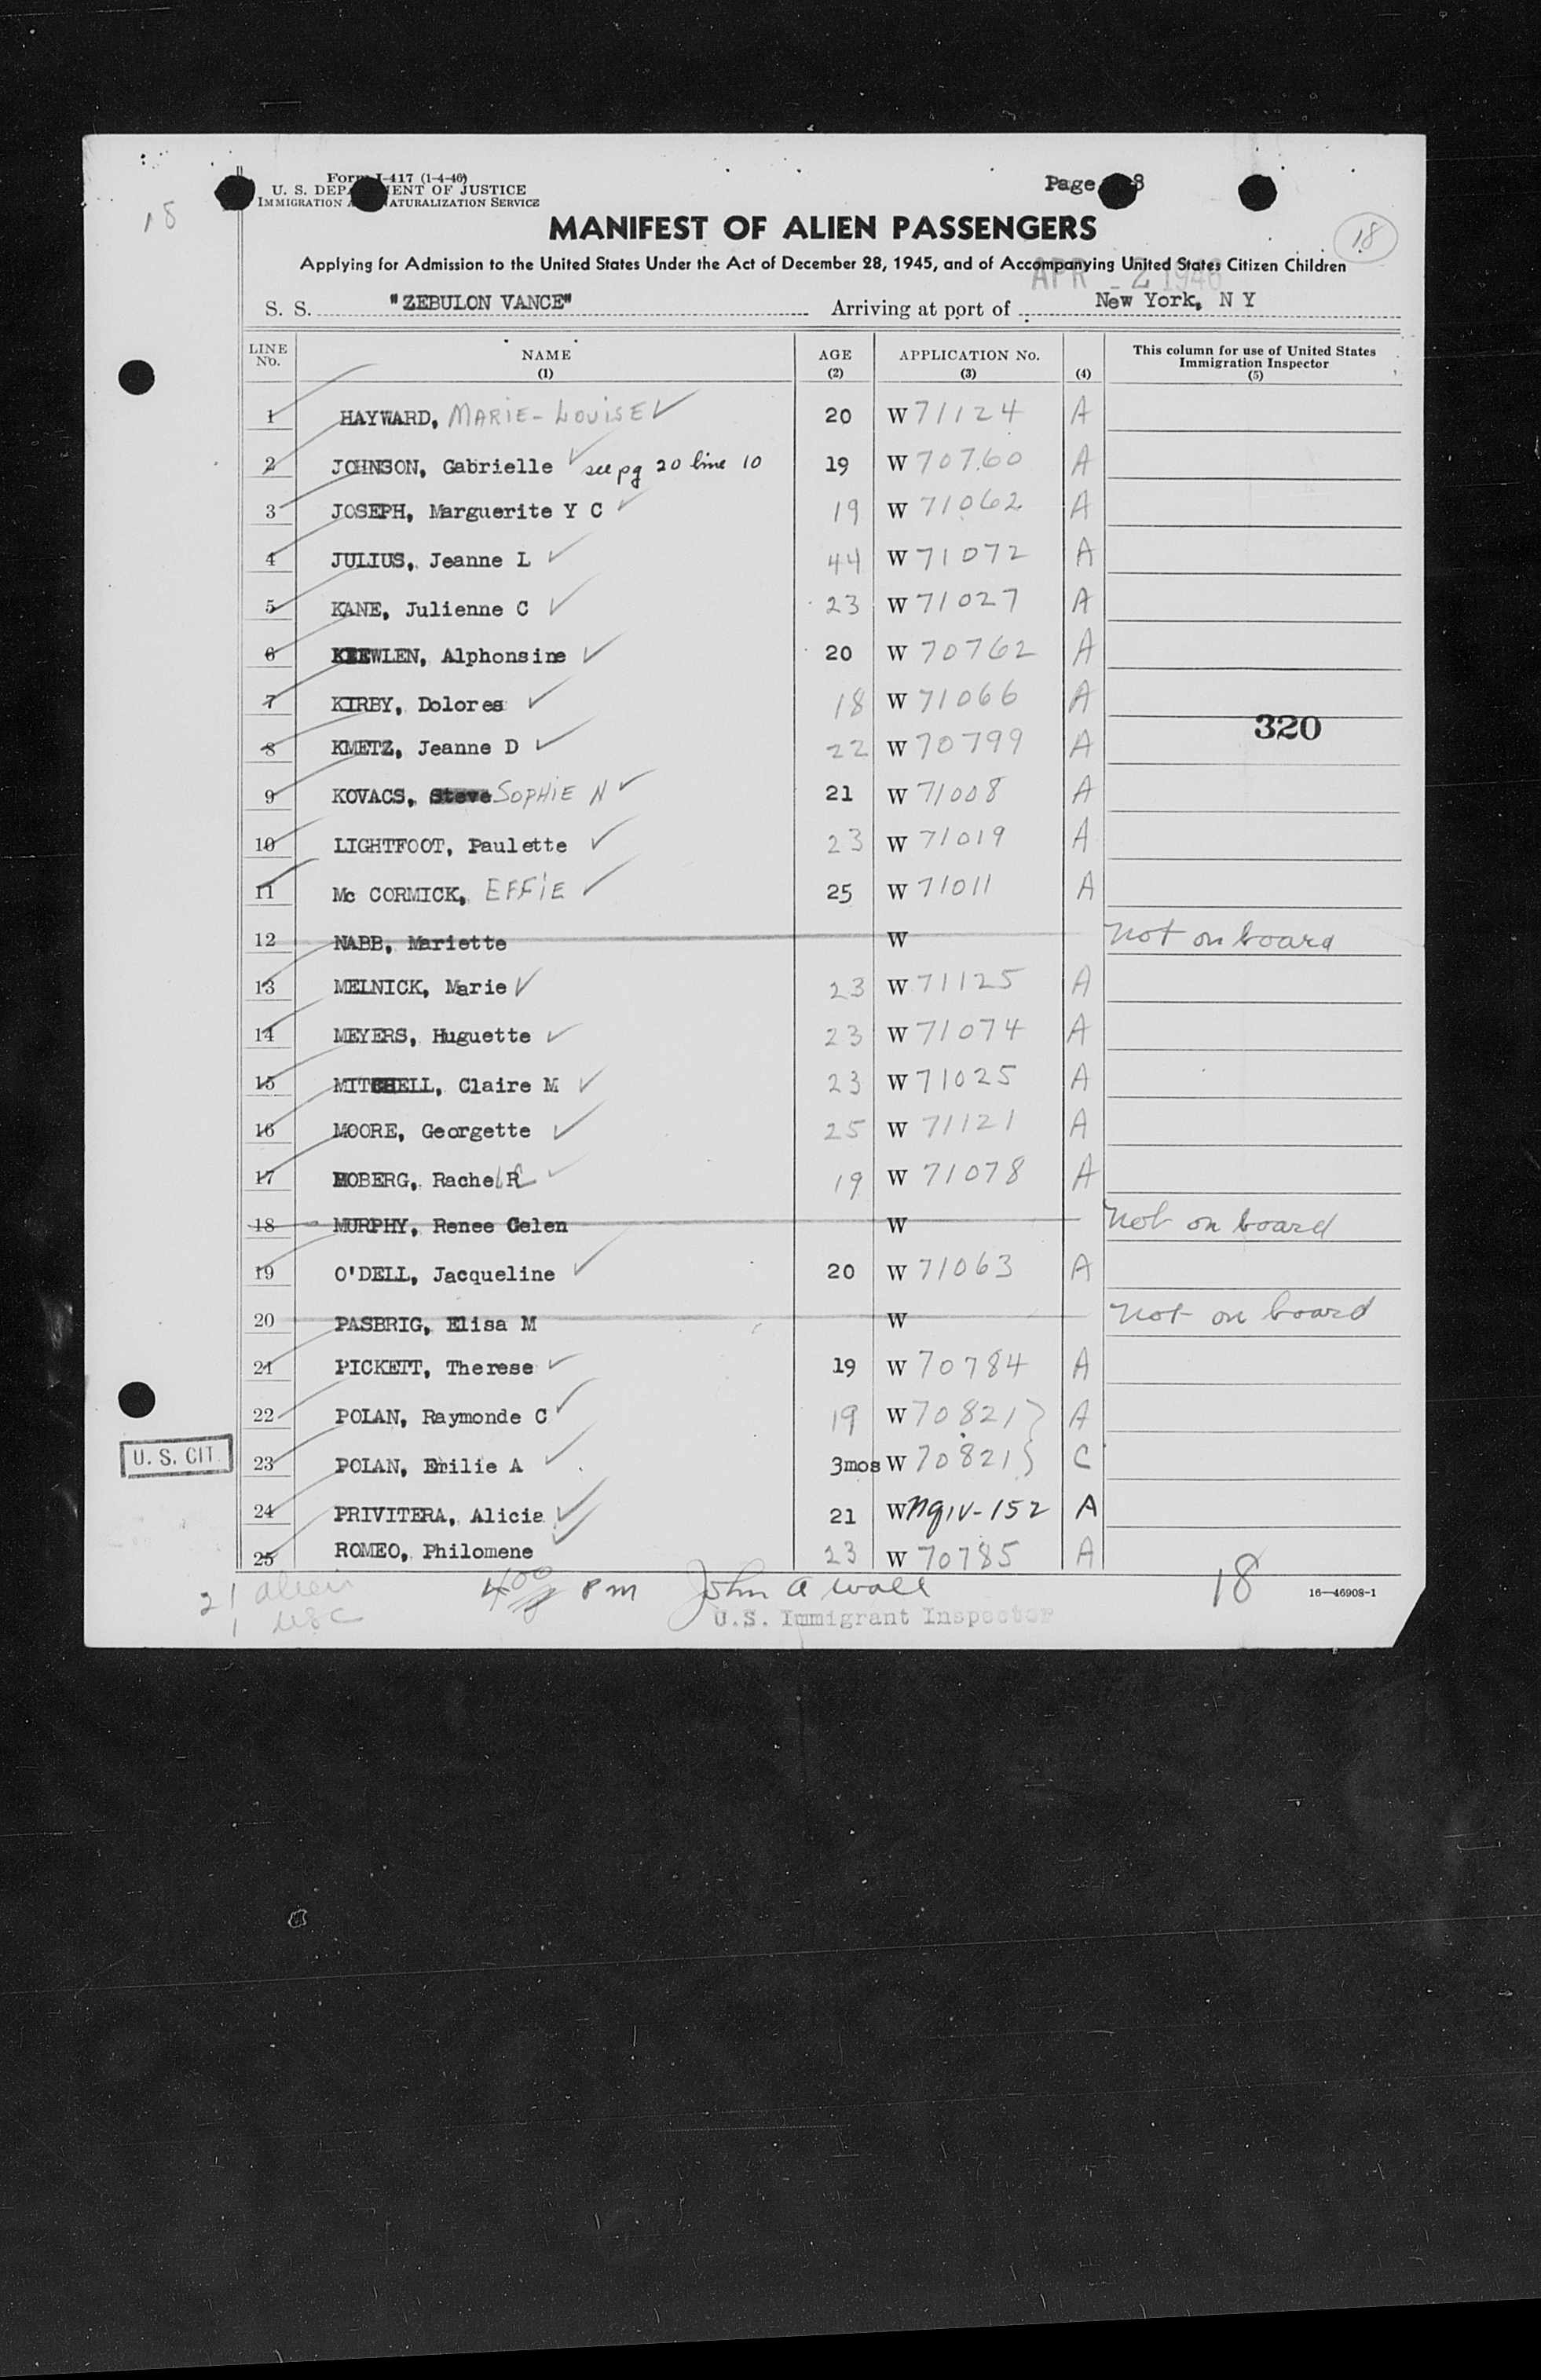 Form I-417 (1-4-46)
U. S. DEPARTMENT OF JUSTICE
IMMIGRATION AND NATURALIZATION SERVICE
Page 18
18
18
MANIFEST OF ALIEN PASSENGERS
Applying for Admission to the United States Under the Act of December 28, 1945, and of Accompanying United States Citizen Children
APR - 2 1946
S. S. "ZEBULON VANCE" Arriving at port of New York, N Y
LINE NO. NAME (1) AGE (2) APPLICATION No. (3) (4) This column for use of United States Immigration Inspector (5)
1 HAYWARD, MARIE-LOUISE ✓ 20 W 71124 A
2 JOHNSON, Gabrielle ✓ see pg 20 line 10 19 W 70760 A
3 JOSEPH, Marguerite Y C ✓ 19 W 71062 A
4 JULIUS, Jeanne L ✓ 44 W 71072 A
5 KANE, Julienne C ✓ 23 W 71027 A
6 KEEWLEN, Alphonsine ✓ 20 W 70762 A
7 KIRBY, Dolores ✓ 18 W 71066 A
320
8 KMETZ, Jeanne D ✓ 22 W 70799 A
9 KOVACS, Steve SOPHIE N ✓ 21 W 71008 A
10 LIGHTFOOT, Paulette ✓ 23 W 71019 A
11 Mc CORMICK, EFFIE ✓ 25 W 71011 A
12 NABB, Mariette W not on board
13 MELNICK, Marie ✓ 23 W 71125 A
14 MEYERS, Huguette ✓ 23 W 71074 A
15 MITCHELL, Claire M ✓ 23 W 71025 A
16 MOORE, Georgette ✓ 25 W 71121 A
17 MOBERG, Rachel R ✓ 19 W 71078 A
18 MURPHY, Renee Celen W not on board
19 O'DELL, Jacqueline ✓ 20 W 71063 A
20 PASBRIG, Elisa M W not on board
21 PICKETT, Therese ✓ 19 W 70784 A
22 POLAN, Raymonde C ✓ 19 W 70821 } A
U. S. CIT. 23 POLAN, Emilie A ✓ 3mos W 70821 } C
24 PRIVITERA, Alicia ✓ 21 W nqiv-152 A
25 ROMEO, Philomene ✓ 23 W 70785 A
21 alien
1 USC
400 pm John A Wall
U.S. Immigrant Inspector
18
16—46908-1